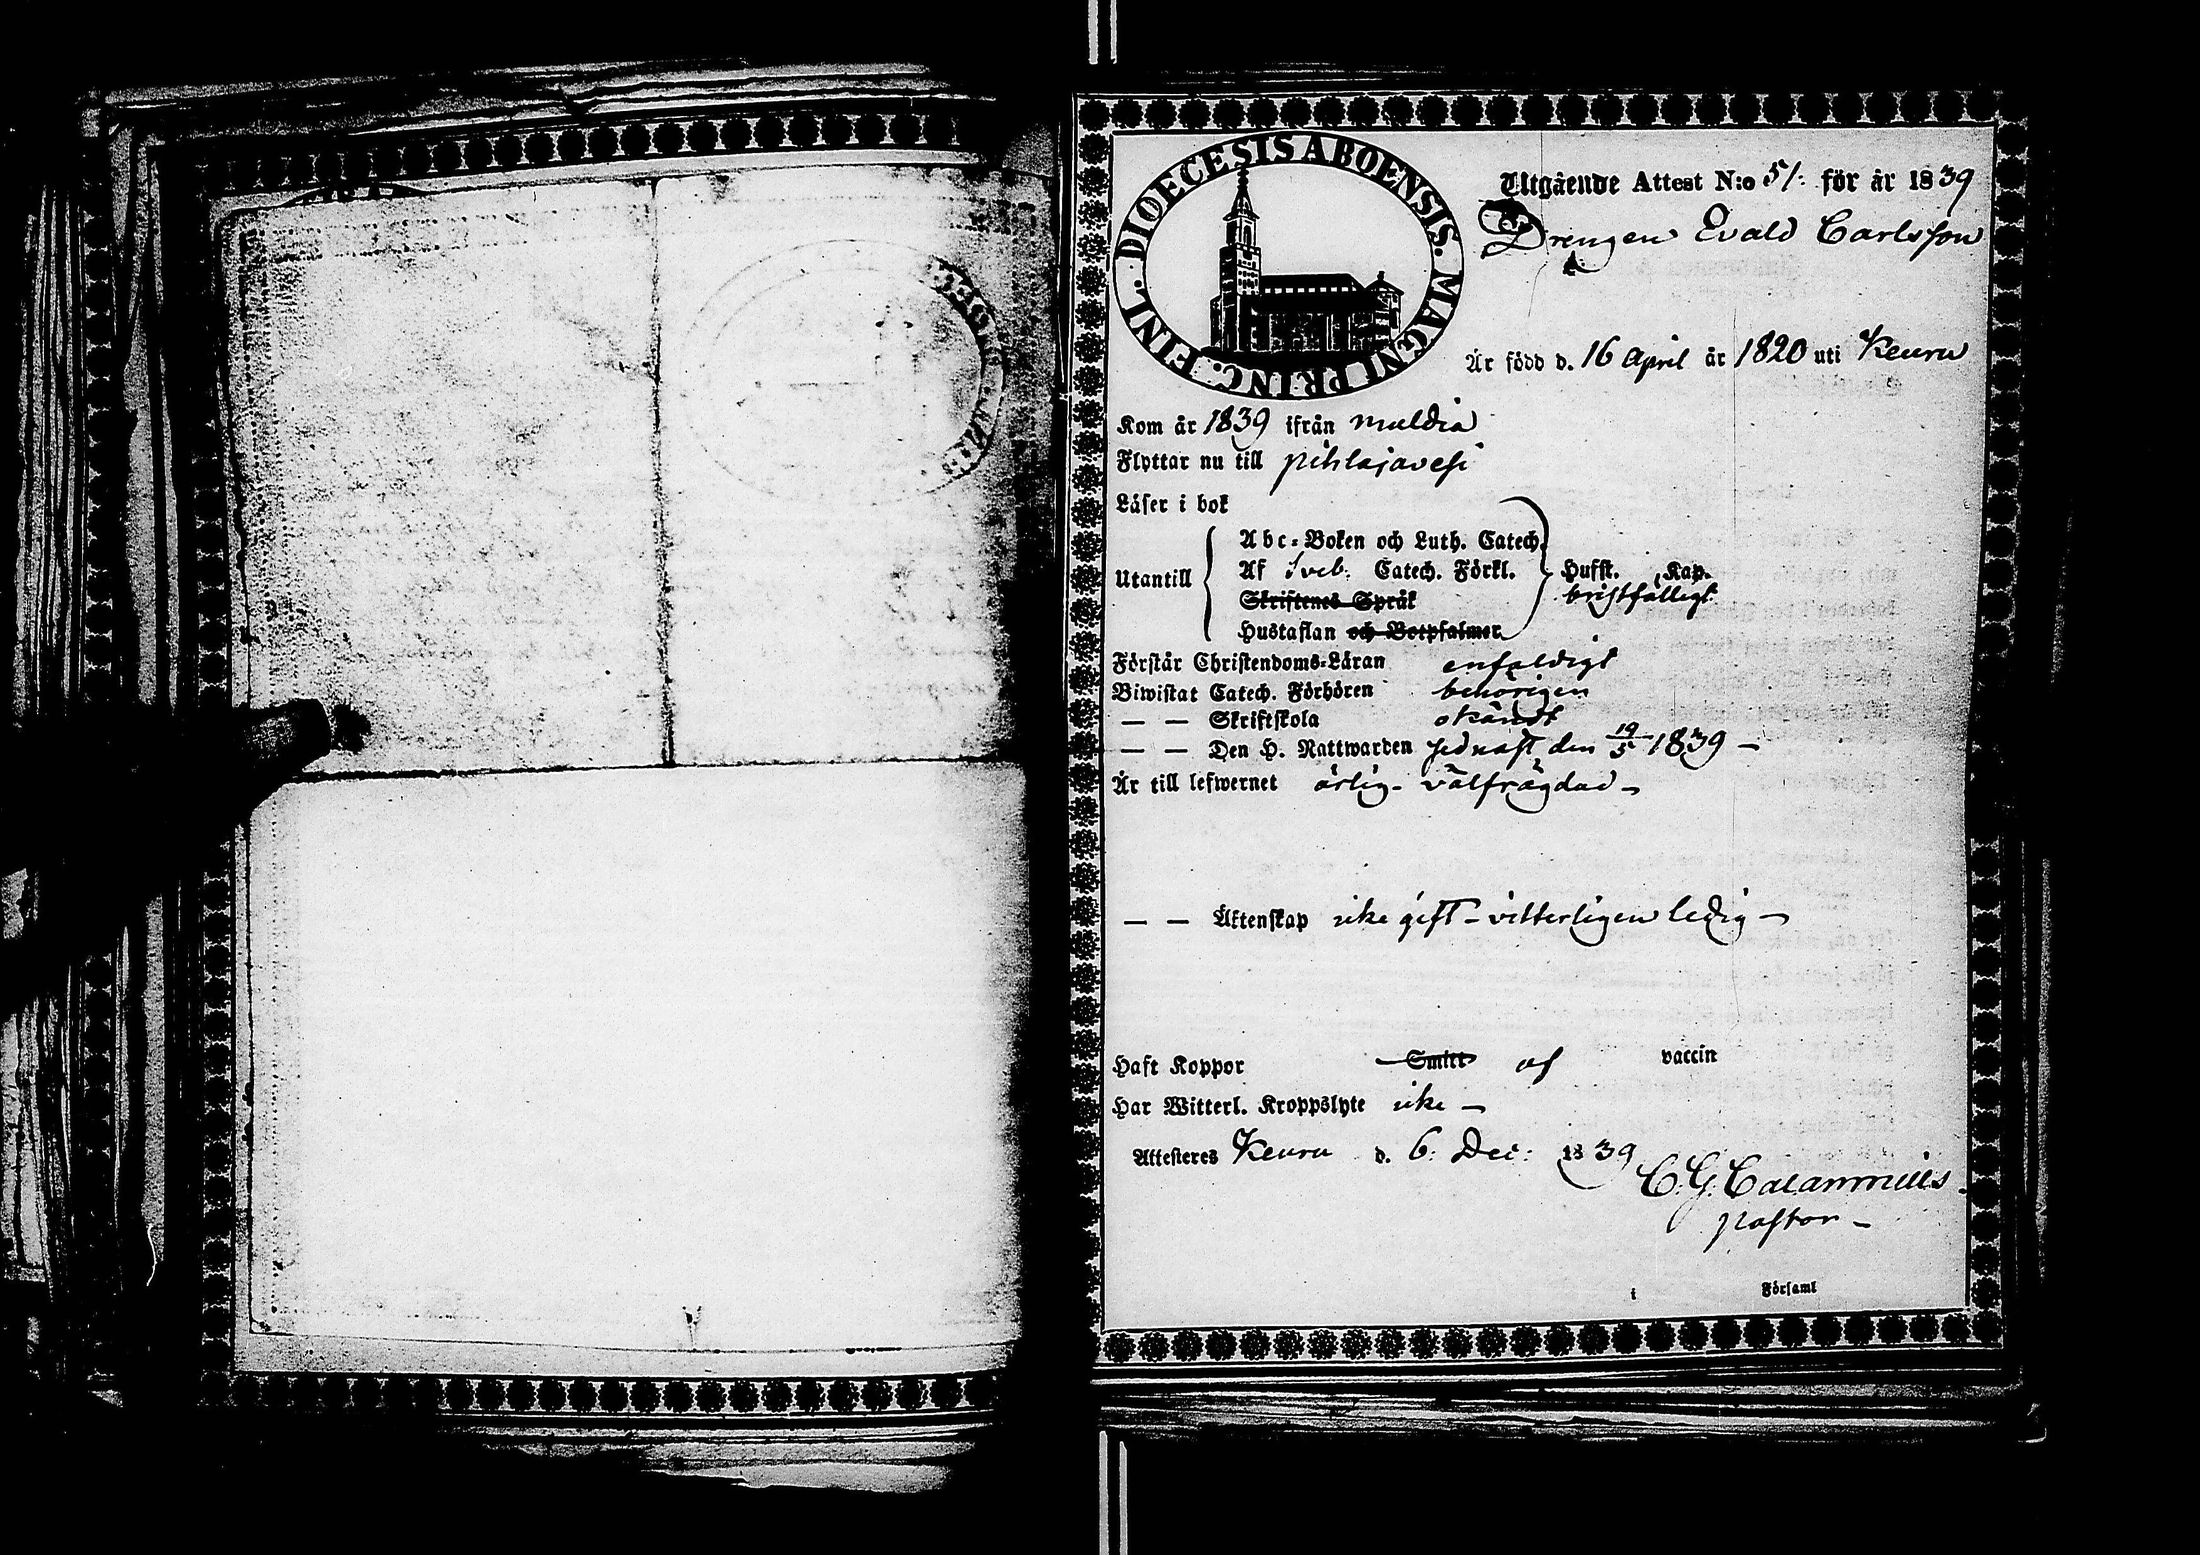 DIOECESIS ABOENSIS. MAGNI PRINC. FINL.
Utgående Attest N:o 51. för år 1839
Drengen Evald Carlsson
Är född d. 16 April år 1820 uti Keuru
Kom år 1839 ifrån muldia
Flyttar nu till pihlajavesi
Läser i bok
Utantill
Abc-Boken och Luth. Catech.
Af Sveb. Catech. Förkl.
Skriftenes Språk
Hustaflan och Botpsalmer
Hufst. Kap.
bristfälligt
Förstår Christendoms-Läran enfaldigt
Biwistat Catech. Förhören behörigen
— — Skriftskola okändt
— — Den H. Nattwarden sednast den 19/5 1839 –
Är till lefwernet ärlig – välfrägdad –
— — Äktenskap icke gift – vitterligen ledig –
Haft Koppor Smitt af vaccin
Har Witterl. Kroppslyte icke –
Attesteres Keuru d. 6. Dec: 1839
C. G. Calamnius.
Pastor –
i Församl